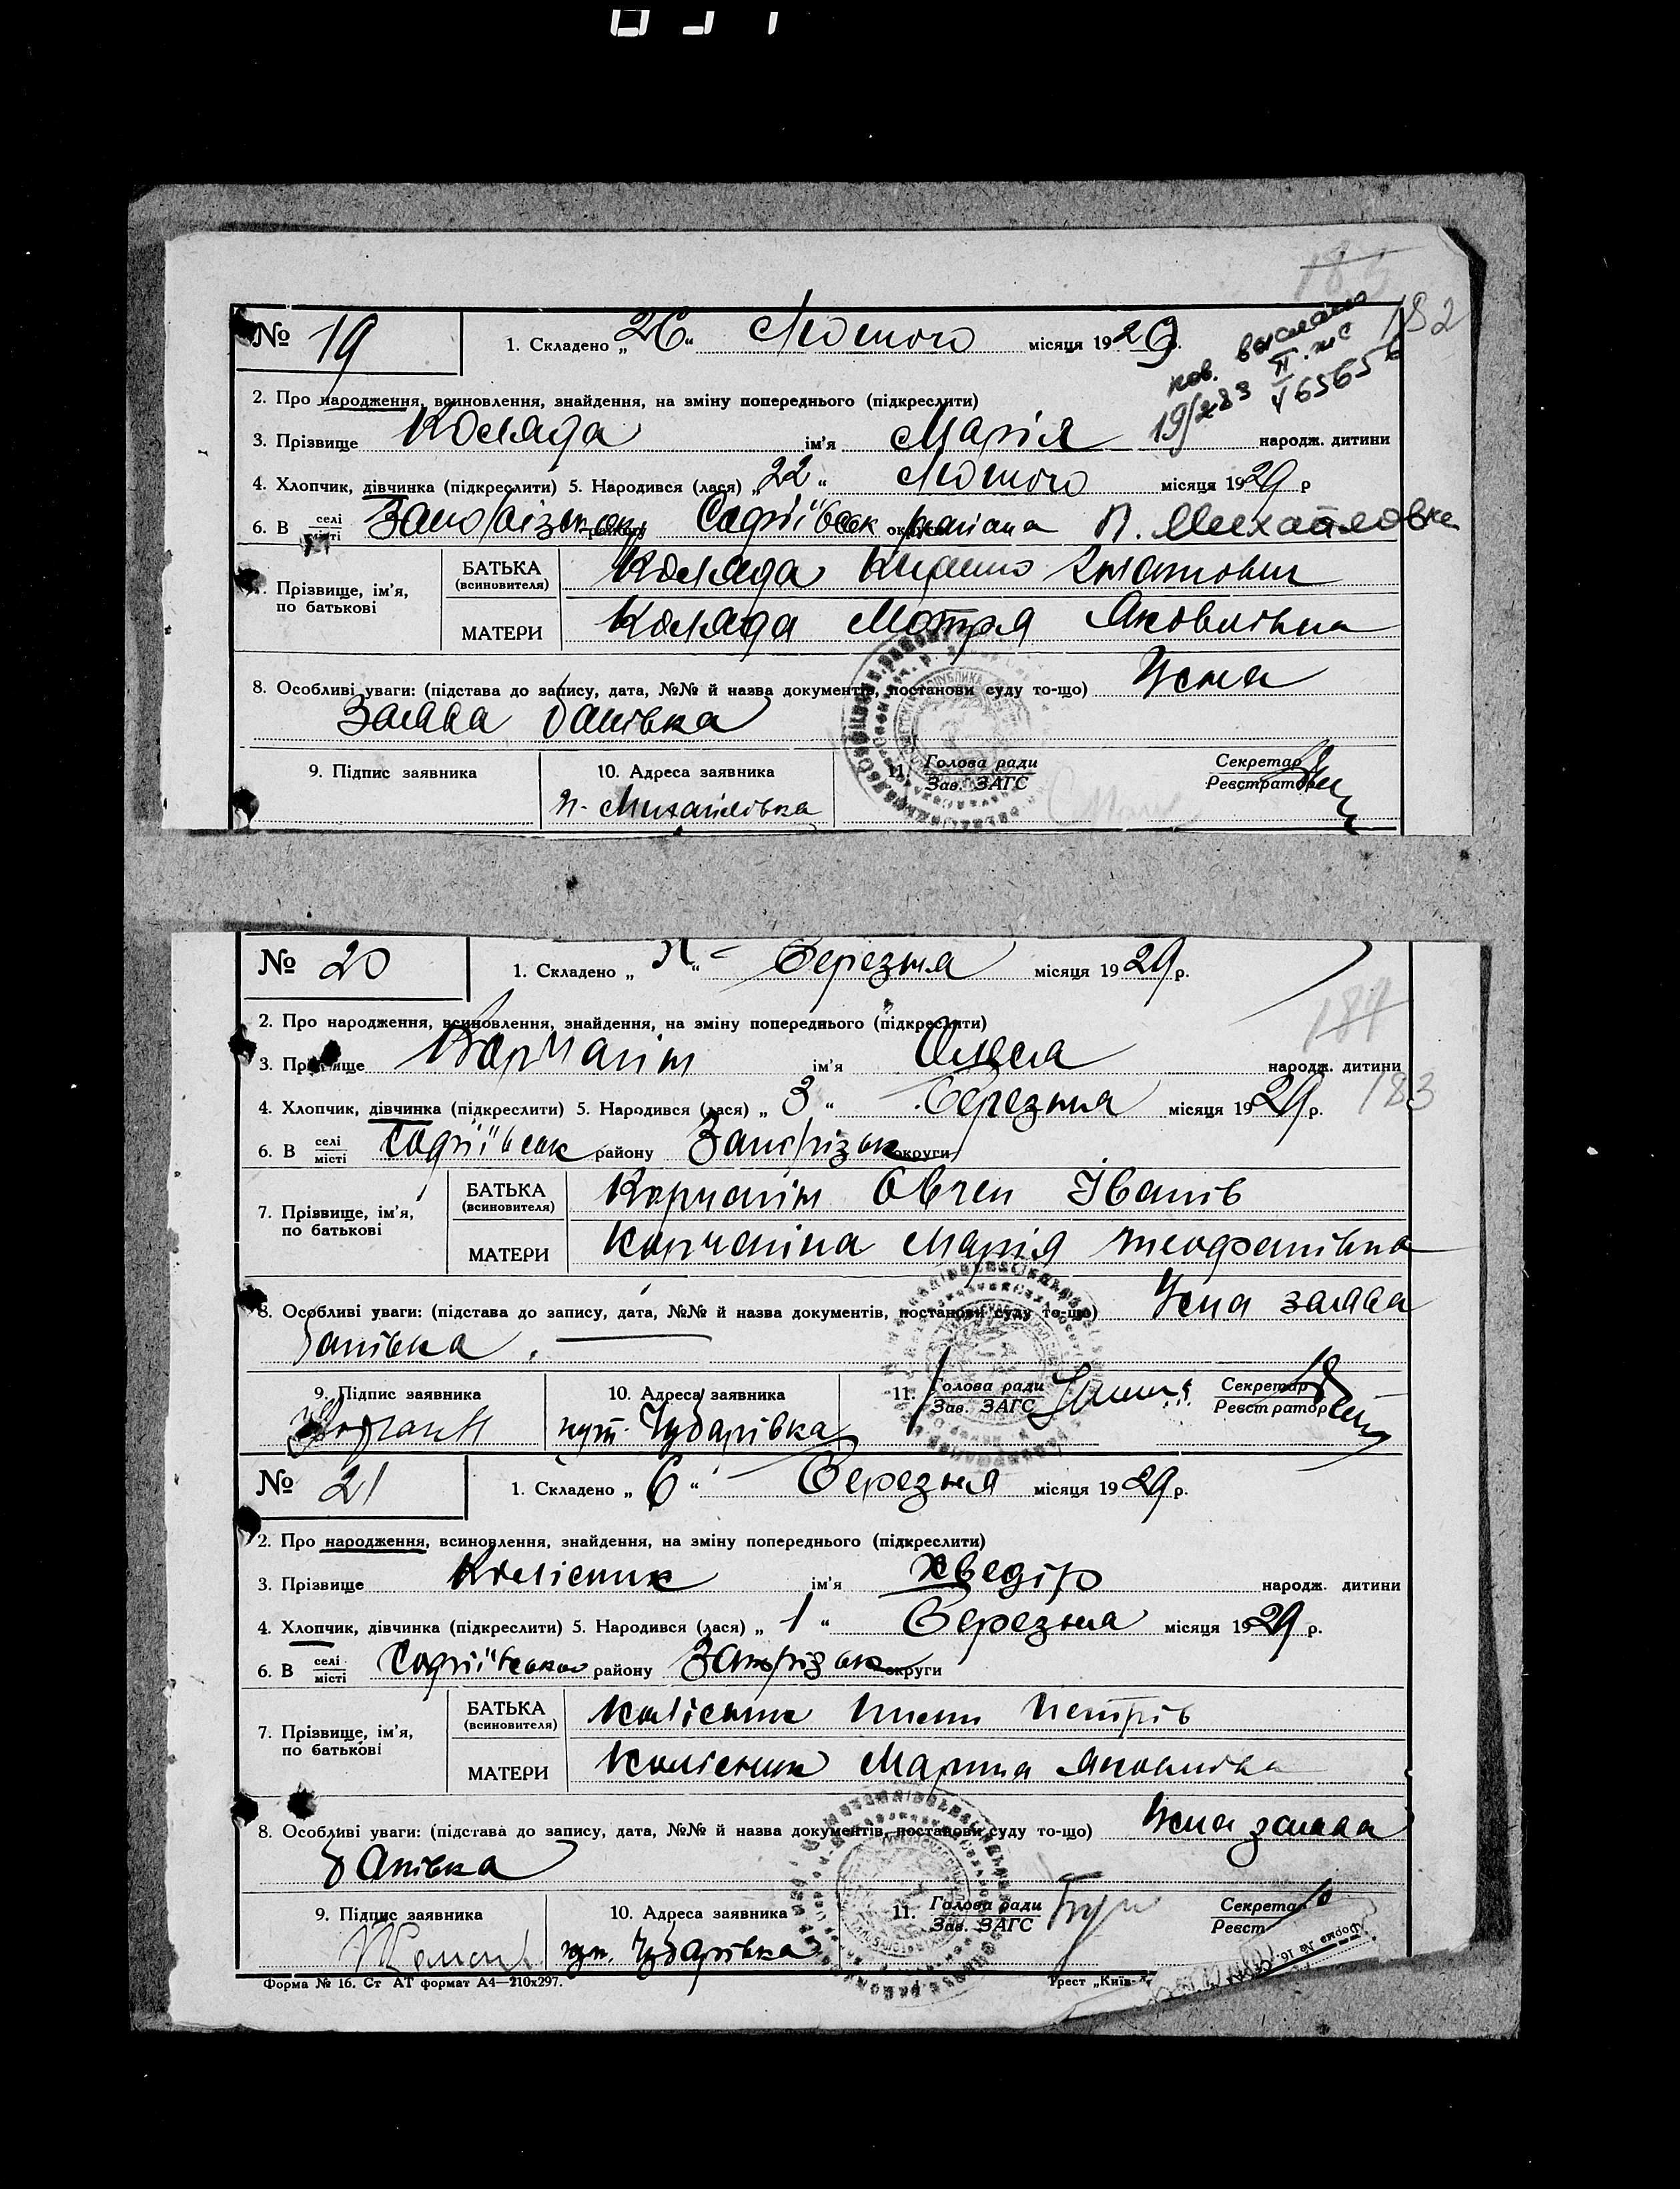 182
№ 19
1. Складено „26“ Лютого місяця 1929 р.
пов. выслано
19/X 83 II
V 656656
2. Про народження, всиновлення, знайдення, на зміну попереднього (підкреслити)
3. Прізвище Коляда ім'я Марія народж. дитини
4. Хлопчик, дівчинка (підкреслити) 5. Народився (лася) „22“ Лютого місяця 1929 р
6. В селі місті Запорізьк округ району Софіївськ округи району П. Михайловка
Прізвище, ім'я, по батькові
БАТЬКА (всиновителя) Коляда
МАТЕРИ Коляда Мотря Яковлівна
8. Особливі уваги: (підстава до запису, дата, №№ й назва документів, постанови суду то-що) Усна
Заява батівка
9. Підпис заявника 10. Адреса заявника 11. Голова ради Зав. ЗАГС Секретар Реєстратор
п. Михайлівка
№ 20
1. Складено „ “ Березня місяця 1929 р.
2. Про народження, всиновлення, знайдення, на зміну попереднього (підкреслити)
187
3. Прізвище Корчагін ім'я Олена народж. дитини
4. Хлопчик, дівчинка (підкреслити) 5. Народився (лася) „3“ Березня місяця 1929 р.
183
6. В селі місті Софіївськ району Запорізьк округи
7. Прізвище, ім'я, по батькові
БАТЬКА (всиновителя) Корчагін Овчен Іванів
МАТЕРИ Корчагіна Марія Теофанівна
8. Особливі уваги: (підстава до запису, дата, №№ й назва документів, постанови суду то-що) Усна заява
батівка.
9. Підпис заявника 10. Адреса заявника 11. Голова ради Зав. ЗАГС Секретар Реєстратор
хут. Чубарівка
№ 21
1. Складено „6“ Березня місяця 1929 р.
2. Про народження, всиновлення, знайдення, на зміну попереднього (підкреслити)
3. Прізвище Колісник ім'я Хведір народж. дитини
4. Хлопчик, дівчинка (підкреслити) 5. Народився (лася) „1“ Березня місяця 1929 р.
6. В селі місті Софіївського району Запорізьк округи
7. Прізвище, ім'я, по батькові
БАТЬКА (всиновителя) Колісник Петрів
МАТЕРИ Колісник Марина Яковлівна
8. Особливі уваги: (підстава до запису, дата, №№ й назва документів, постанови суду то-що) Усна заява
батівка
9. Підпис заявника 10. Адреса заявника 11. Голова ради Зав. ЗАГС Секретар Реєст
хут. Чубарівка
Форма № 16. Ст АТ формат А4—210х297. Трест „Київ-
Форма № 16.